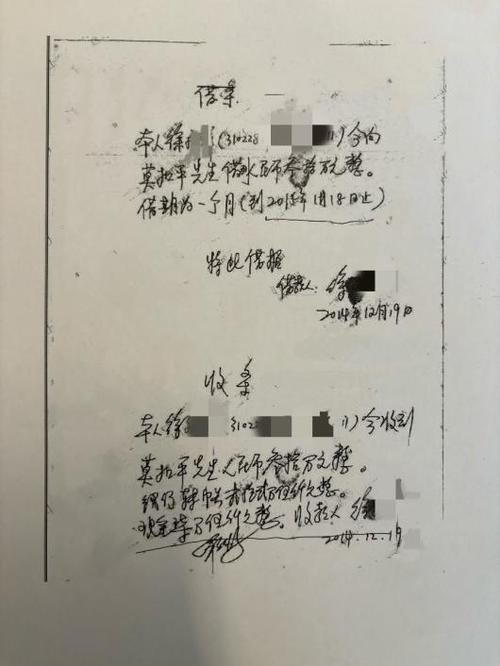 借条
本人徐(310228 11)今向
莫拉平先生借人民币叁拾万元整。
借期为一个月(到2015年1月18日止)
特此借据
借款人:徐
2014年12月19日
收条
本人徐 31022 11)今收到
莫拉平先生人民币叁拾万元整。
万仟元整。
万仟元整。收款人 徐
2014.12.19